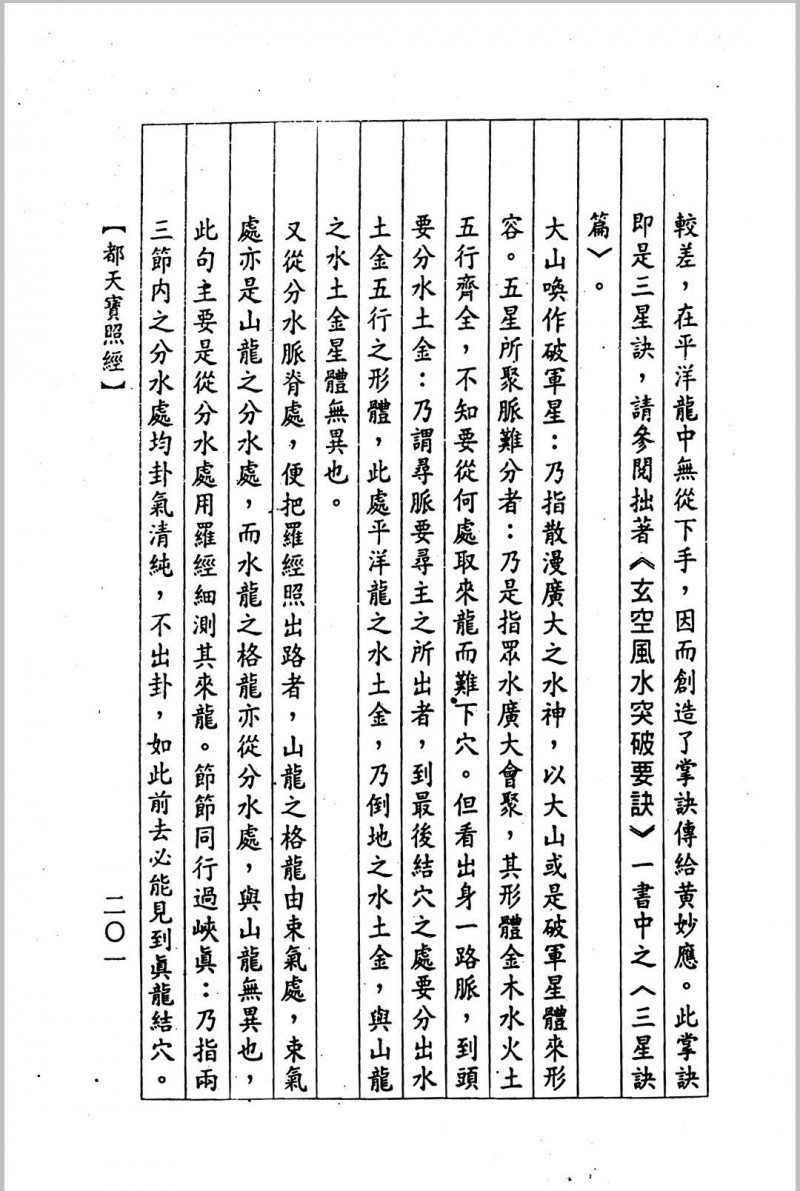 較差，在平洋龍中無從下手，因而創造了掌訣傳給黃妙應。此掌訣
即是三星訣，請參閱拙著《玄空風水突破要訣》一書中之〈三星訣
篇〉。
大山喚作破軍星：乃指散漫廣大之水神，以大山或是破軍星體來形
容。五星所聚脈難分者：乃是指眾水廣大會聚，其形體金木水火土
五行齊全，不知要從何處取來龍而難下穴。但看出身一路脈，到頭
要分水土金：乃謂尋脈要尋主之所出者，到最後結穴之處要分出水
土金五行之形體，此處平洋龍之水土金，乃倒地之水土金，與山龍
之水土金星體無異也。
又從分水脈脊處，便把羅經照出路者，山龍之格龍由束氣處，束氣
處亦是山龍之分水處，而水龍之格龍亦從分水處，與山龍無異也，
此句主要是從分水處用羅經細測其來龍。節節同行過峽眞：乃指兩
三節內之分水處均卦氣清純，不出卦，如此前去必能見到眞龍結穴。
【都天寶照經】
二〇一